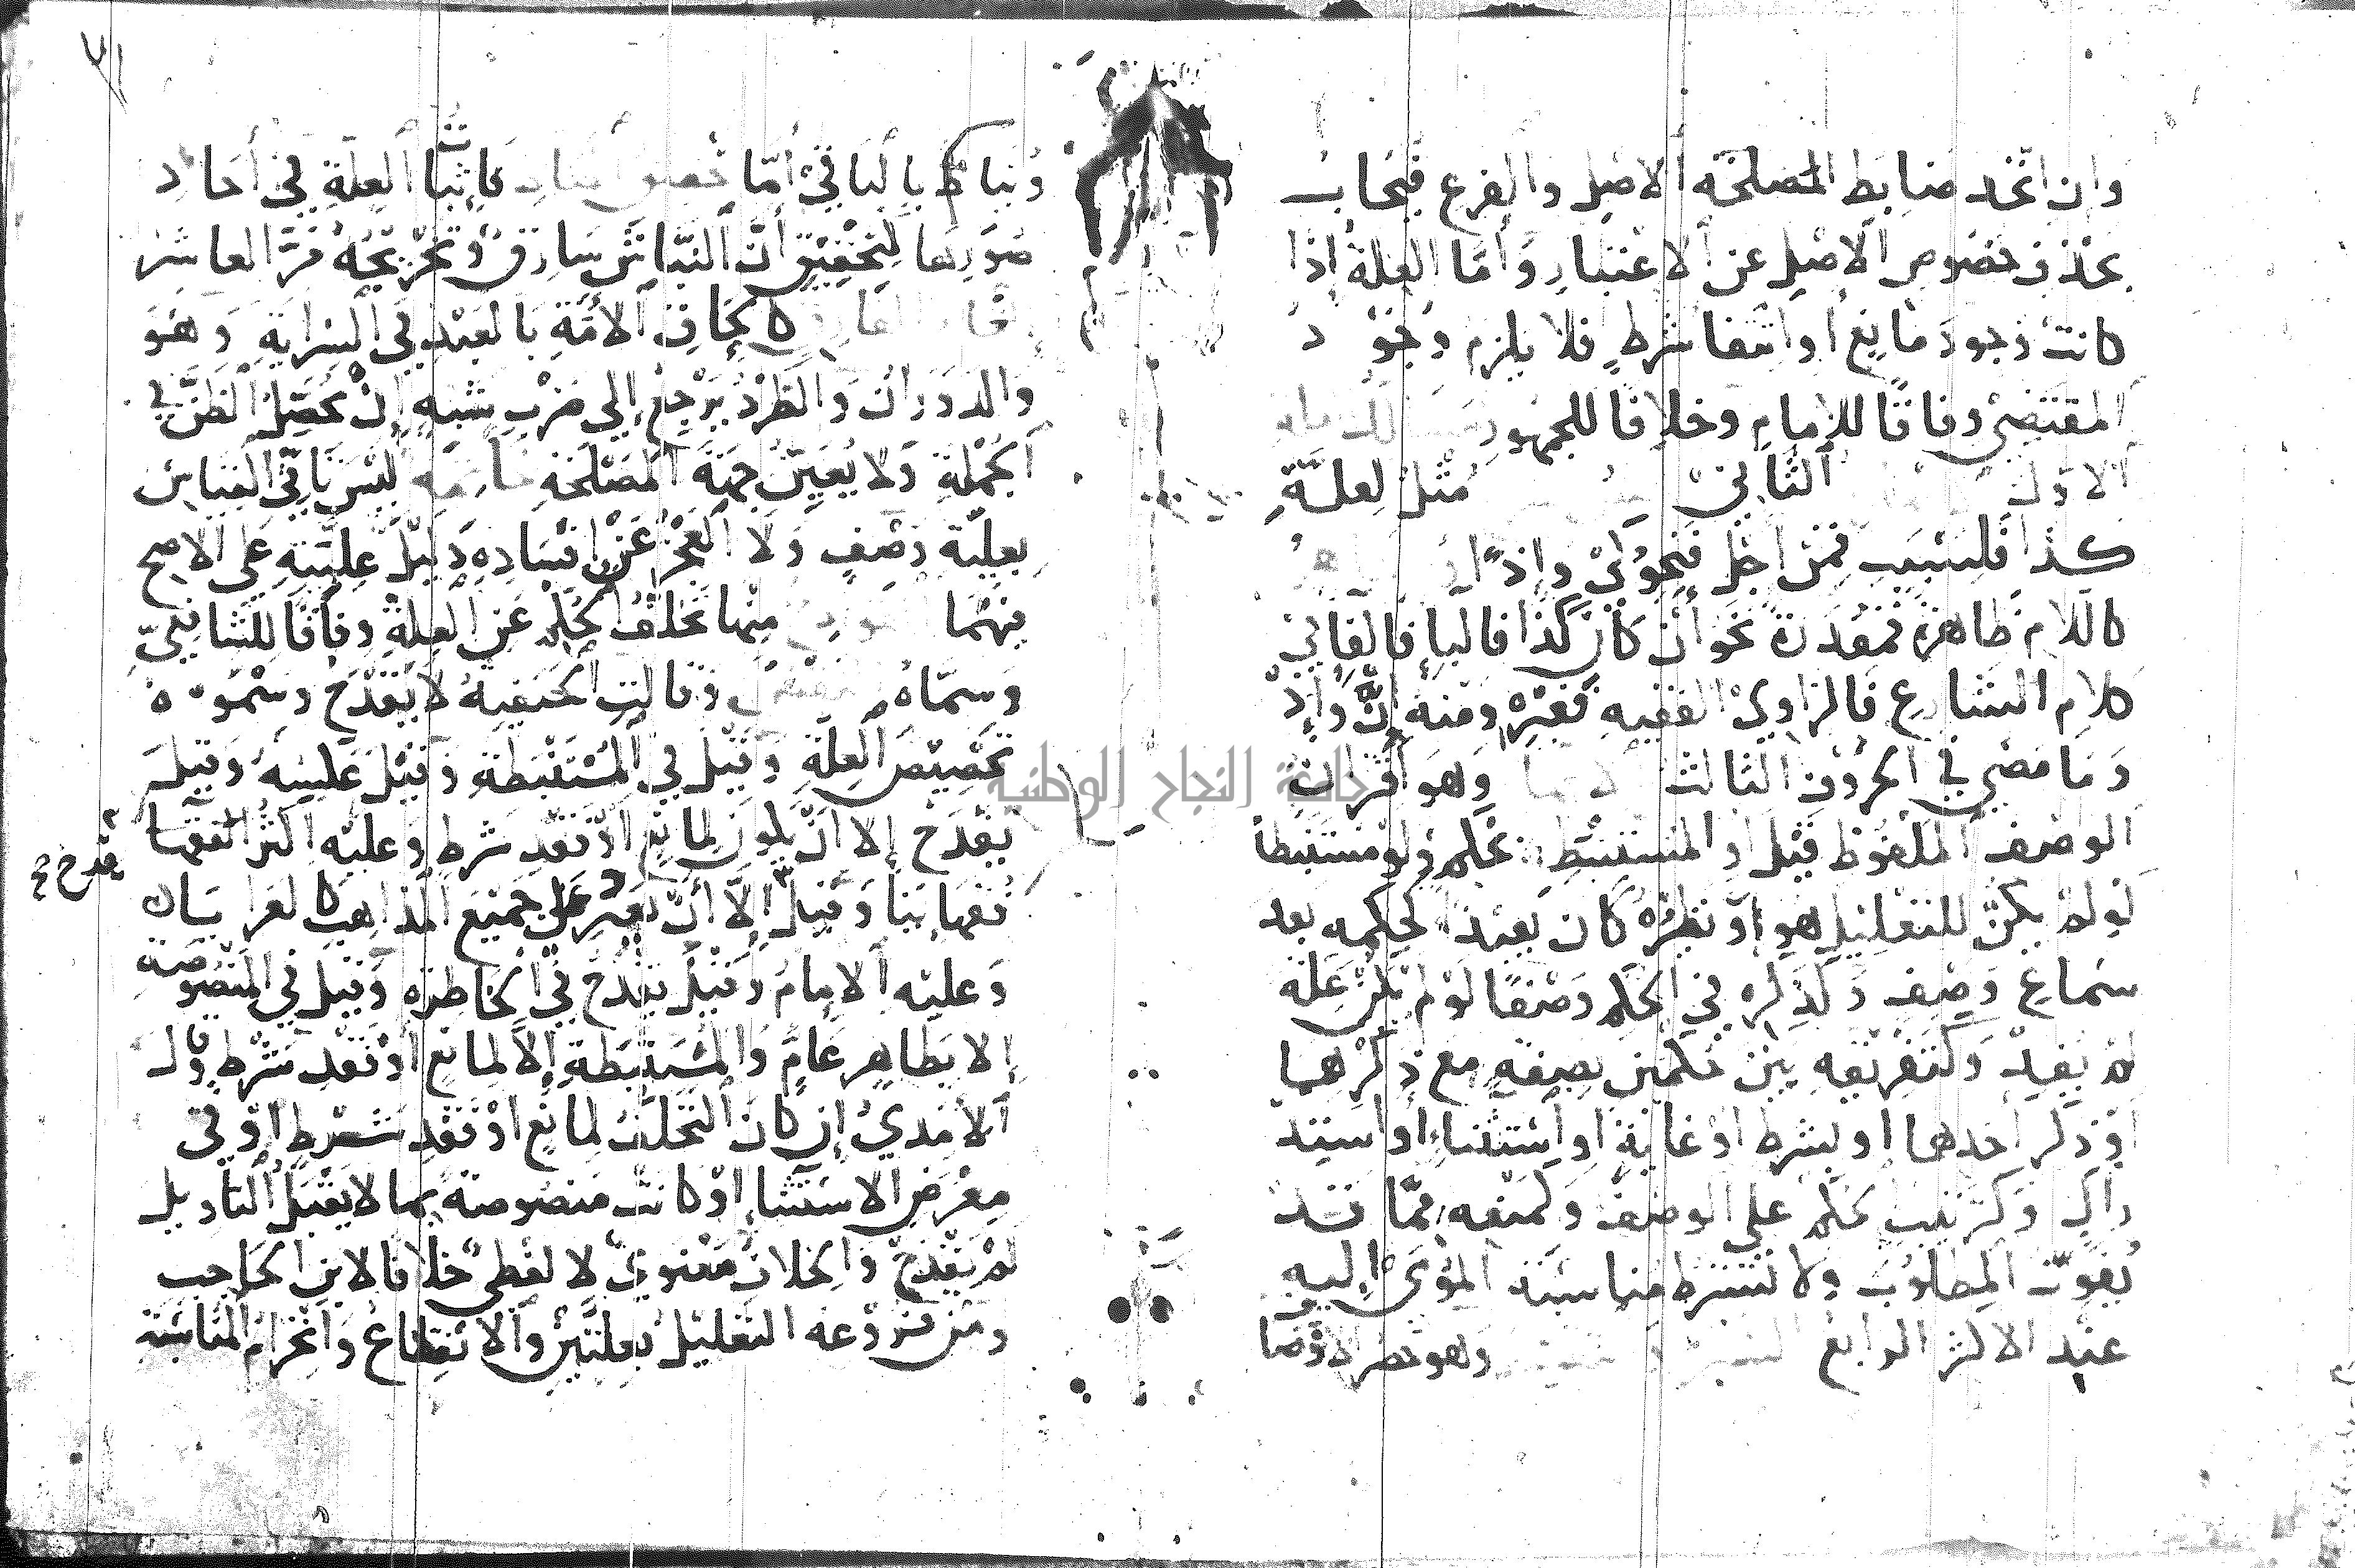 وان اتحد ضابط المصلحة الاصل والفرع فيجاب
بحذف خصوص الاصل عن الاعتبار وأما العلة إذا
كانت وجود مانع أو انتفا شرط فلا يلزم وجود
المقتضى وفاقا للامام وخلافا للجمهور
الاول الثاني مثل لعلة
كذا فلسبب فمن اجل فنحو كى وإذا
كاللام ظاهرة فمقدرة نحو أن كان كذا فالبا فالفا في
كلام الشارع فالراوي الفقيه فغيره ومنه إن وإذ
وما مضى في الحروف الثالث وهو اقتران
الوصف الملفوظ قيل او المستنبط بحكم ولو مستنبطا
لو لم يكن للتعليل هو أو نظيره كان بعيدا كحكمه بعد
سماع وصف وكذكره في الحكم وصفا لو لم يكن علة
لم يفد وكتفريقه بين حكمين بصفة مع ذكرهما
او ذكر احدهما او بشرط او غاية او استثناء او استد
راك وكترتيب حكم على الوصف وكمنعه مما قد
يفوت المطلوب ولا تشترط مناسبة المومى إليه
عند الاكثر الرابع وهو حصر الاوصا
ف
ويناط بالباقي أما تحقيق فاثبات العلة في أحاد
صورها لتحقيق أن النباش سارق وتخريجه مر العاشر
كالحاق الامة بالعبد في السراية وهو
والدوران والطرد يرجع إلى ضرب شبه إذ تحصل الظن في
الجملة ولا يعين جهة المصلحة خاتمة ليس تأتي القياس
بعلية وصف ولا العجز عن افساده دليل عليته على الاصح
فيهما منها تخلف الحكم عن العلة وفاقا للشافعي
وسماه وقالت الحنفية لا يقدح وسموه
تخصيص العلة وقيل في المستنبطة وقيل عكسه وقيل
يقدح إلا أن يكون لمانع او فقد شرط وعليه اكثر الفقها
يقدح صح
فقهاينا وقيل إلا أن يرد على جميع المذاهب كالعرايا
وعليه الامام وقيل يقدح في الحاظرة وقيل في المنصوصة
إلا بظاهر عام والمستنبطة إلا لمانع او فقد شرط وقال
الامدي إن كان التخلف لمانع او فقد شرط او في
معرض الاستثنا او كانت منصوصة بما لا يقبل التاويل
لم يقدح والخلاف معنوي لا لفظي خلافا لابن الحاجب
ومن فروعه التعليل بعلتين والانقطاع وانخرام المناسبة
جامعة النجاح الوطنية